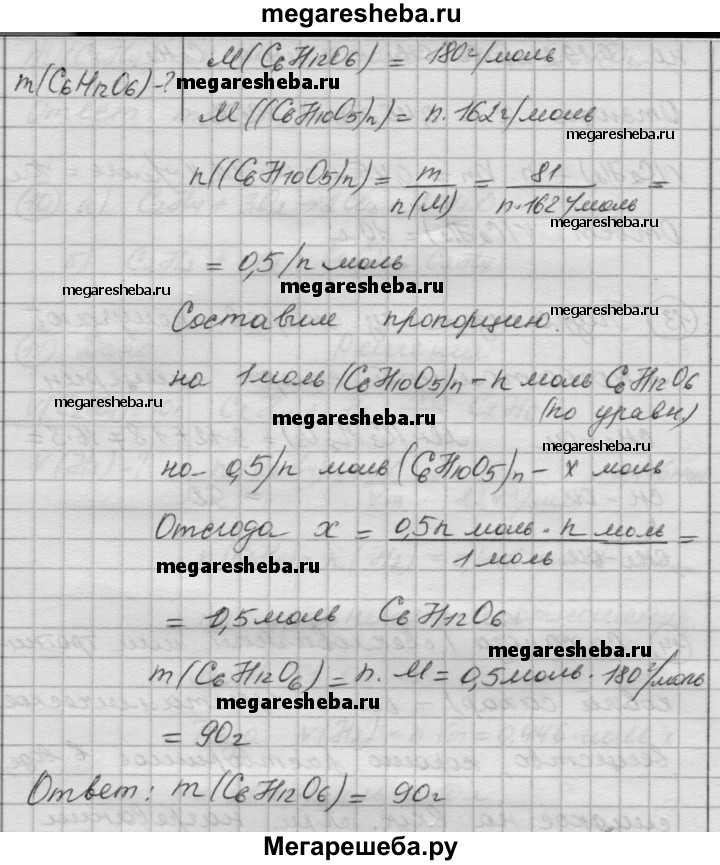 megaresheba.ru
M(C6H12O6) = 180г/моль
m(C6H12O6)-?
megaresheba.ru
M((C6H10O5)n) = n·162г/моль
megaresheba.ru
n((C6H10O5)n) = m/n(M) = 81/n·162г/моль =
megaresheba.ru
= 0,5/n моль
megaresheba.ru
megaresheba.ru
Составим пропорцию.
megaresheba.ru
на 1моль (C6H10O5)n - n моль C6H12O6
megaresheba.ru
megaresheba.ru
(по уравн.)
megaresheba.ru
на 0,5/n моль (C6H10O5)n - x моль
Отсюда x = 0,5n моль · n моль/1 моль =
megaresheba.ru
megaresheba.ru
= 0,5моль C6H12O6
megaresheba.ru
m(C6H12O6) = n·M = 0,5моль · 180г/моль
megaresheba.ru
= 90г
Ответ: m(C6H12O6) = 90г
Мегарешеба.ру